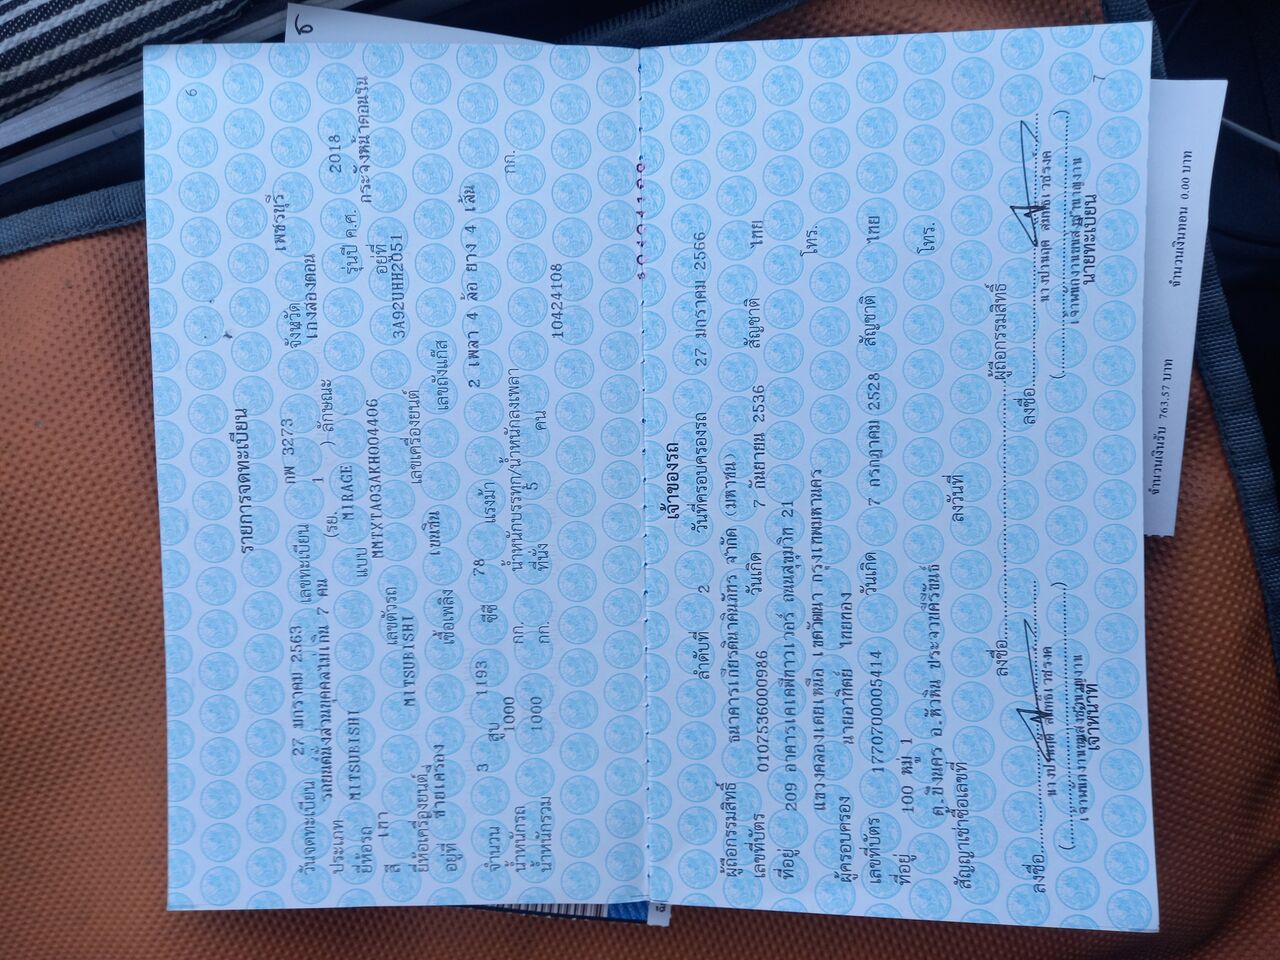 6
รายการจดทะเบียน
วันจดทะเบียน 27 มกราคม 2563 เลขทะเบียน กพ 3273 จังหวัด เพชรบุรี
ประเภท รถยนต์นั่งส่วนบุคคลไม่เกิน 7 คน (รย. 1 ) ลักษณะ เก๋งสองตอน
ยี่ห้อรถ MITSUBISHI แบบ MIRAGE รุ่นปี ค.ศ. 2018
สี เทา เลขตัวรถ MMTXTA03AKH004406 อยู่ที่ กระจังหน้าตอนใน
ยี่ห้อเครื่องยนต์ MITSUBISHI เลขเครื่องยนต์ 3A92UHH2051
อยู่ที่ ซ้ายเครื่อง เชื้อเพลิง เบนซิน เลขถังแก๊ส
จำนวน 3 สูบ 1193 ซีซี 78 แรงม้า 2 เพลา 4 ล้อ ยาง 4 เส้น
น้ำหนักรถ 1000 กก. น้ำหนักบรรทุก/น้ำหนักลงเพลา กก.
น้ำหนักรวม 1000 กก. ที่นั่ง 5 คน 10424108
เจ้าของรถ
ลำดับที่ 2 วันที่ครอบครองรถ 27 มกราคม 2566
ผู้ถือกรรมสิทธิ์ ธนาคารเกียรตินาคินภัทร จำกัด (มหาชน)
เลขที่บัตร 0107536000986 วันเกิด 7 กันยายน 2536 สัญชาติ ไทย
ที่อยู่ 209 อาคารเคเคพีทาวเวอร์ ถนนสุขุมวิท 21
แขวงคลองเตยเหนือ เขตวัฒนา กรุงเทพมหานคร โทร.
ผู้ครอบครอง นายอาทิตย์ ไทยทอง
เลขที่บัตร 1770700005414 วันเกิด 7 กรกฎาคม 2528 สัญชาติ ไทย
ที่อยู่ 100 หมู่ 1
ต.บึงนคร อ.หัวหิน ประจวบคีรีขันธ์ โทร.
สัญญาเช่าซื้อเลขที่ ลงวันที่
ลงชื่อ ผู้ถือกรรมสิทธิ์
ลงชื่อ ลงชื่อ
เจ้าหน้าที่ นายทะเบียน
7
จำนวนเงินรับ 763.57 บาท จำนวนเงินทอน 0.00 บาท